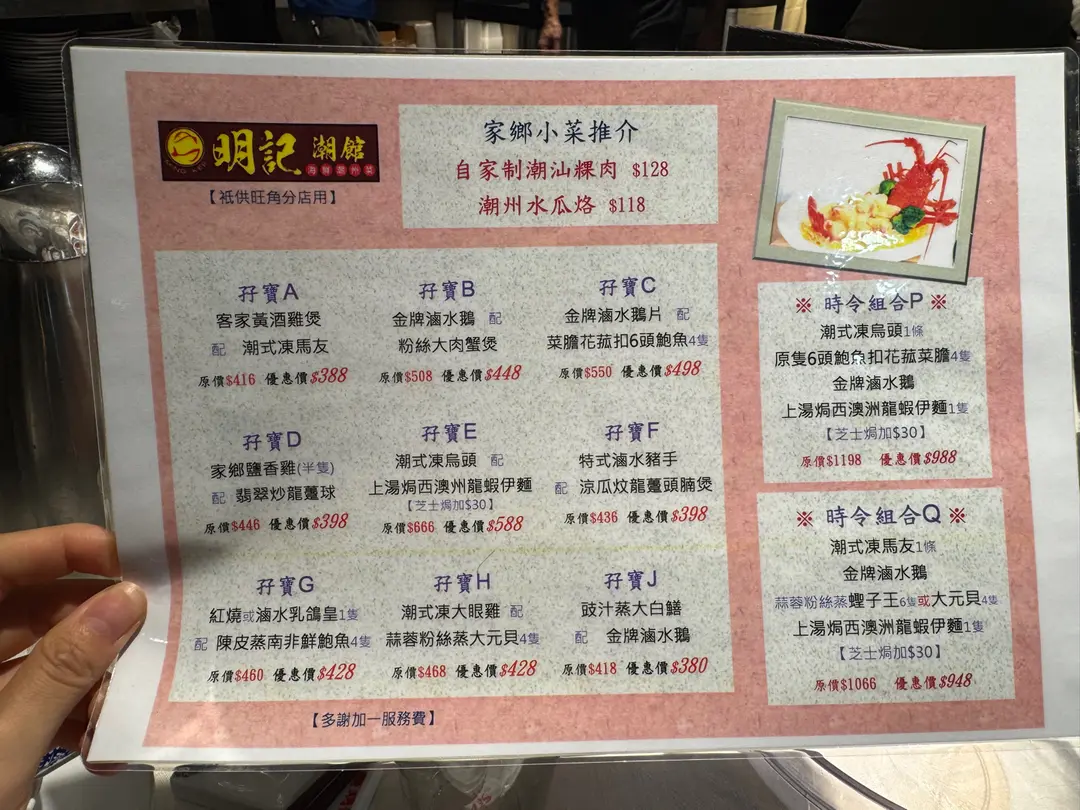 明記 潮館
海鮮潮州菜
【祇供旺角分店用】
家鄉小菜推介
自家制潮汕粿肉 $128
潮州水瓜烙 $118
孖寶A
客家黃酒雞煲
配 潮式凍馬友
原價$416 優惠價$388
孖寶B
金牌滷水鵝 配
粉絲大肉蟹煲
原價$508 優惠價$448
孖寶C
金牌滷水鵝片 配
菜膽花菰扣6頭鮑魚4隻
原價$550 優惠價$498
孖寶D
家鄉鹽香雞(半隻)
配 翡翠炒龍躉球
原價$446 優惠價$398
孖寶E
潮式凍烏頭 配
上湯焗西澳州龍蝦伊麵
【芝士焗加$30】
原價$666 優惠價$588
孖寶F
特式滷水豬手
配 涼瓜炆龍躉頭腩煲
原價$436 優惠價$398
孖寶G
紅燒或滷水乳鴿皇1隻
配 陳皮蒸南非鮮鮑魚4隻
原價$460 優惠價$428
孖寶H
潮式凍大眼雞 配
蒜蓉粉絲蒸大元貝4隻
原價$468 優惠價$428
孖寶J
豉汁蒸大白鱔
配 金牌滷水鵝
原價$418 優惠價$380
【多謝加一服務費】
※ 時令組合P ※
潮式凍烏頭1條
原隻6頭鮑魚扣花菰菜膽4隻
金牌滷水鵝
上湯焗西澳洲龍蝦伊麵1隻
【芝士焗加$30】
原價$1198 優惠價$988
※ 時令組合Q ※
潮式凍馬友1條
金牌滷水鵝
蒜蓉粉絲蒸蟶子王6隻或大元貝4隻
上湯焗西澳洲龍蝦伊麵1隻
【芝士焗加$30】
原價$1066 優惠價$948